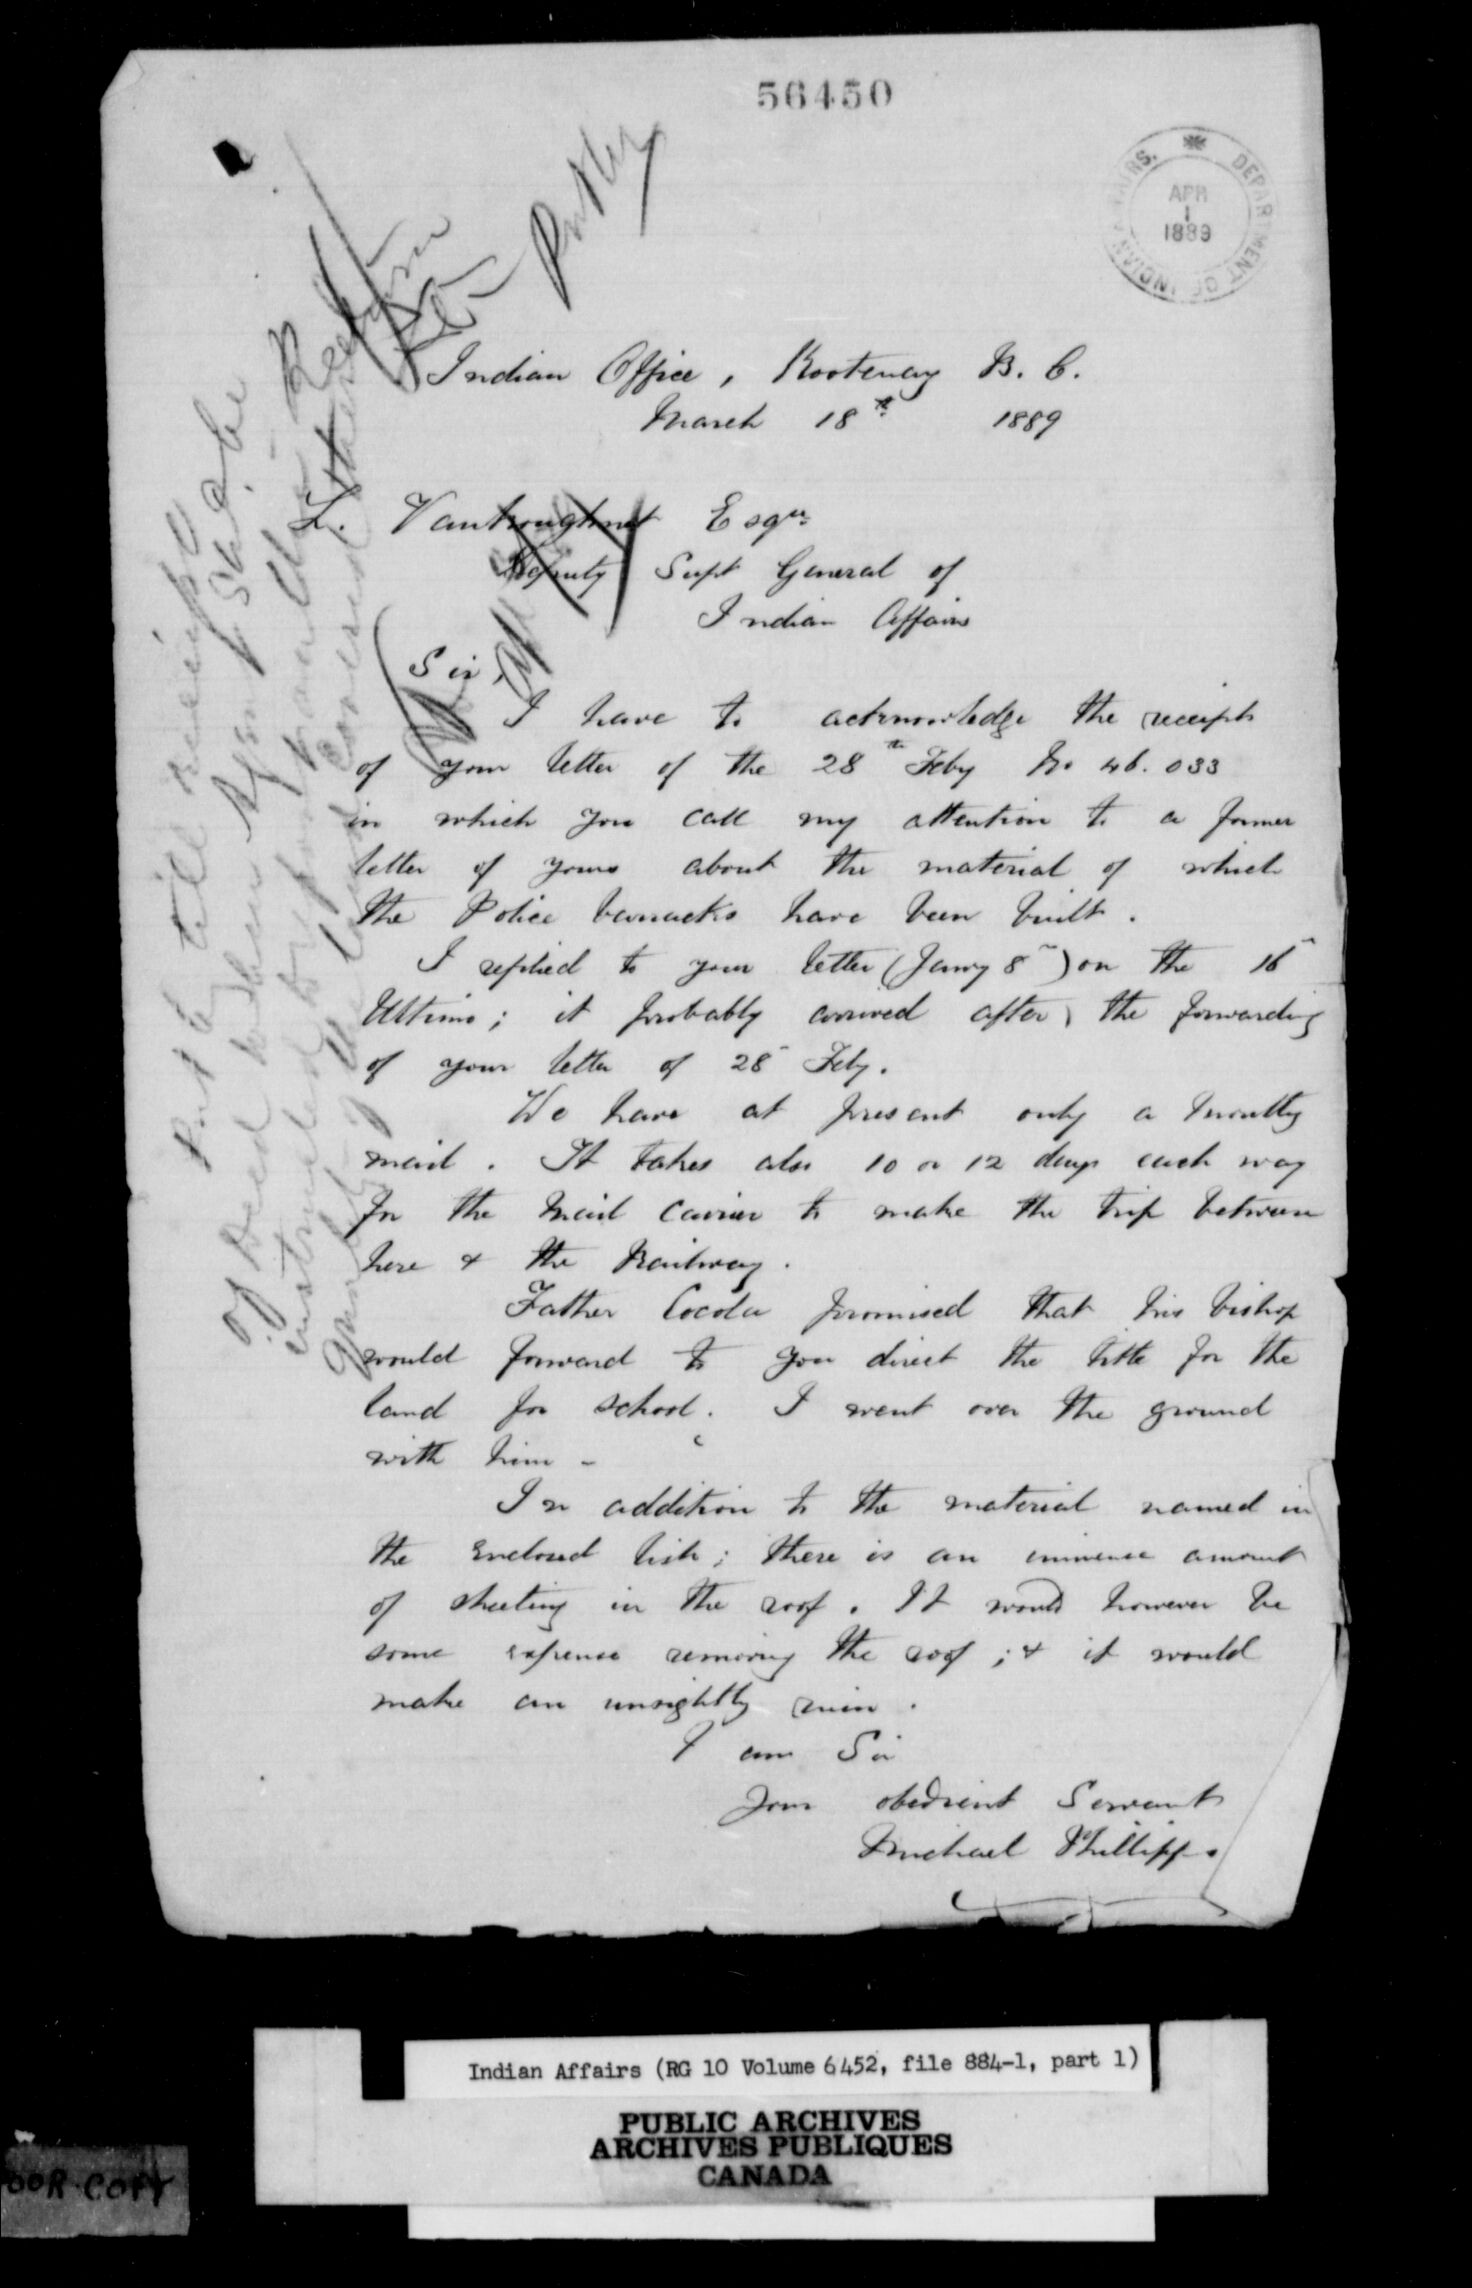 56450
DEPARTMENT OF INDIAN AFFAIRS.
APR
1
1889
Indian Office, Kootenay B. C.
March 18th 1889
L. Vankoughnet Esqre
Deputy Supt General of
Indian Affairs
Sir,
I have to acknowledge the receipt
of your letter of the 28th Feby No 46.033
in which you call my attention to a former
letter of yours about the material of which
the Police barracks have been built.
I replied to your letter (Janry 8") on the 16"
Ultimo; it probably arrived after the forwarding
of your letter of 28" Feby.
We have at present only a monthly
mail. It takes also 10 or 12 days each way
for the Mail Carrier to make the trip between
here & the Railway.
Father Cocola promised that his bishop
would forward to you direct the title for the
land for school. I went over the ground
with him -
In addition to the material named in
the Enclosed list; there is an immense amount
of sheeting in the roof. It would however be
some expense removing the roof; & it would
make an unsightly ruin.
I am Sir
Your obedient Servant
Michael Phillipps
Put by till receipt
of Deed when Agent shd be
instructed
Indian Affairs (RG 10 Volume 6452, file 884-1, part 1)
PUBLIC ARCHIVES
ARCHIVES PUBLIQUES
CANADA
OOR COPY